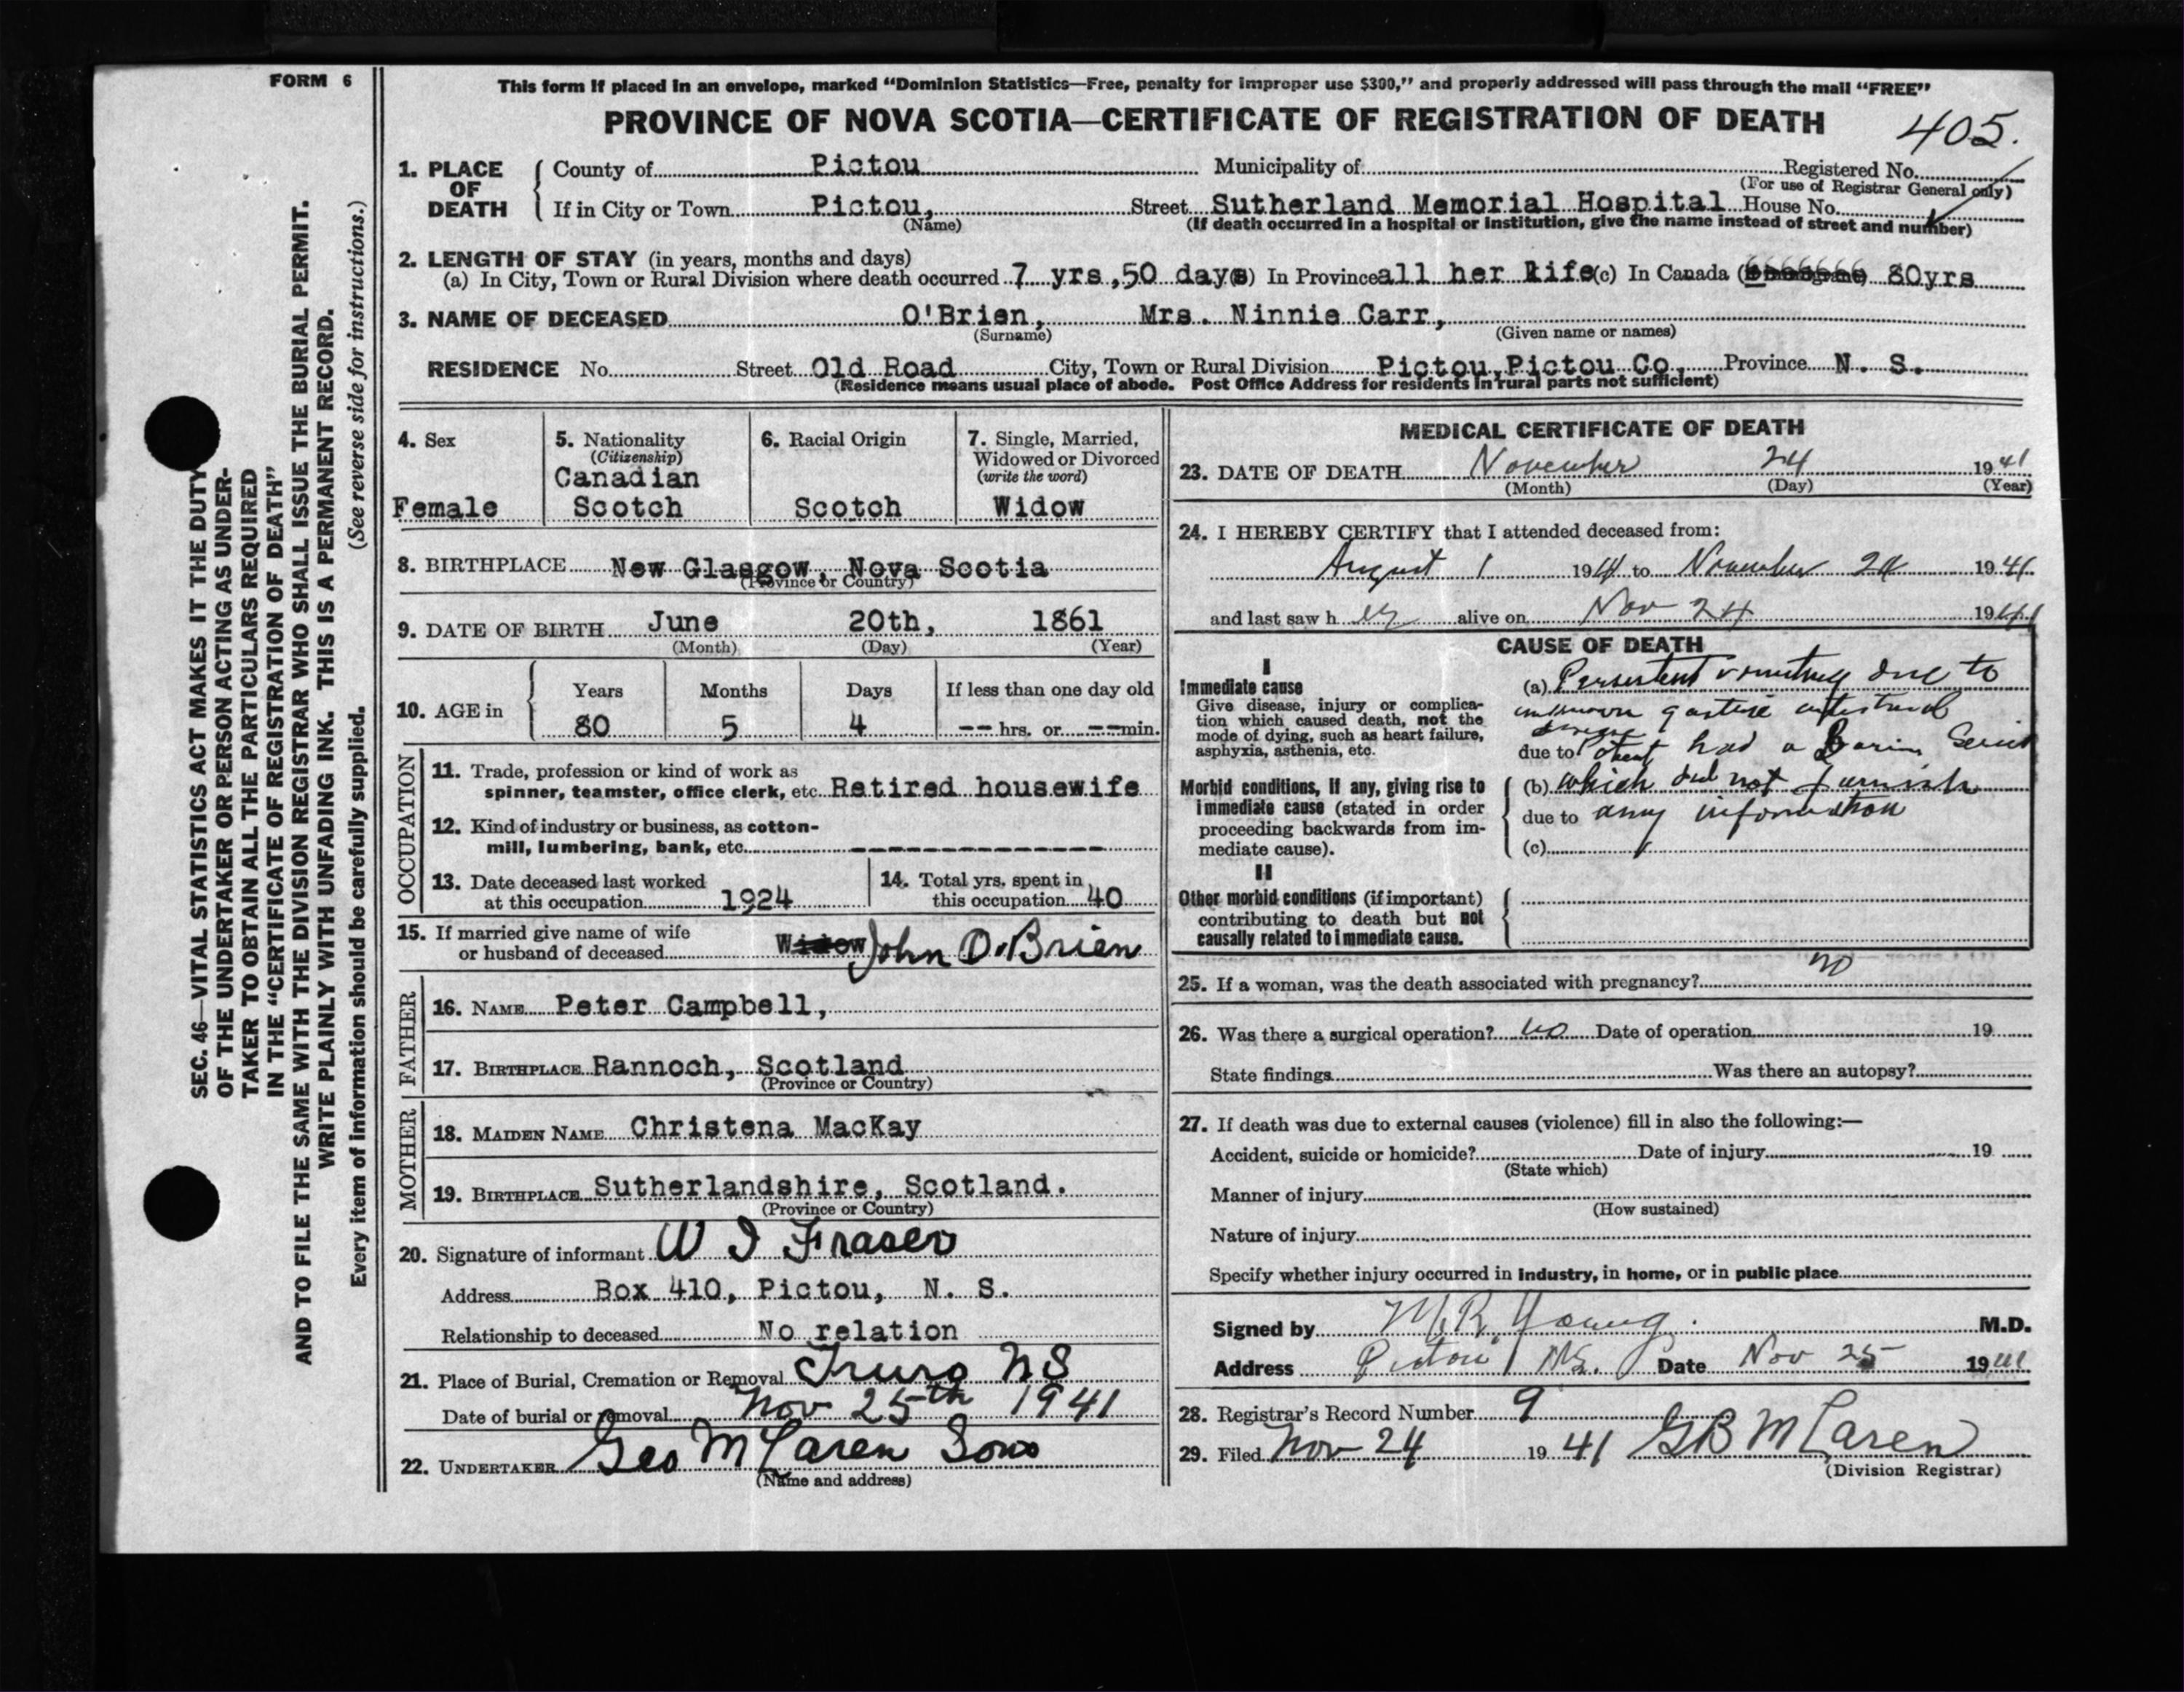 FORM 6
This form if placed in an envelope, marked “Dominion Statistics—Free, penalty for improper use $300,” and properly addressed will pass through the mail “FREE”
PROVINCE OF NOVA SCOTIA—CERTIFICATE OF REGISTRATION OF DEATH
405.
1. PLACE OF DEATH
County of Pictou Municipality of Registered No.
(For use of Registrar General only)
If in City or Town Pictou, Street Sutherland Memorial Hospital House No.
(Name) (If death occurred in a hospital or institution, give the name instead of street and number)
2. LENGTH OF STAY (in years, months and days)
(a) In City, Town or Rural Division where death occurred 7 yrs,50 days) In Province all her life (c) In Canada 80yrs
3. NAME OF DECEASED O'Brien, Mrs. Ninnie Carr,
(Surname) (Given name or names)
RESIDENCE No. Street Old Road City, Town or Rural Division Pictou,Pictou Co. Province N. S.
(Residence means usual place of abode. Post Office Address for residents in rural parts not sufficient)
4. Sex
Female
5. Nationality
(Citizenship)
Canadian
Scotch
6. Racial Origin
Scotch
7. Single, Married,
Widowed or Divorced
(write the word)
Widow
8. BIRTHPLACE New Glasgow, Nova Scotia
(Province or Country)
9. DATE OF BIRTH June 20th, 1861
(Month) (Day) (Year)
10. AGE in
Years Months Days If less than one day old
80 5 4 -- hrs. or -- min.
OCCUPATION
11. Trade, profession or kind of work as
spinner, teamster, office clerk, etc. Retired housewife
12. Kind of industry or business, as cotton-
mill, lumbering, bank, etc. ----------------
13. Date deceased last worked
at this occupation 1924
14. Total yrs. spent in
this occupation 40
15. If married give name of wife
or husband of deceased Widow John O'Brien
FATHER
16. NAME Peter Campbell,
17. BIRTHPLACE Rannoch, Scotland
(Province or Country)
MOTHER
18. MAIDEN NAME Christena MacKay
19. BIRTHPLACE Sutherlandshire, Scotland.
(Province or Country)
20. Signature of informant W I Fraser
Address Box 410, Pictou, N. S.
Relationship to deceased No relation
21. Place of Burial, Cremation or Removal Truro NS
Date of burial or removal Nov 25th 1941
22. UNDERTAKER Geo McLaren Sons
(Name and address)
MEDICAL CERTIFICATE OF DEATH
23. DATE OF DEATH November 24 1941
(Month) (Day) (Year)
24. I HEREBY CERTIFY that I attended deceased from:
August 1 1941 to November 24 1941
and last saw h er alive on Nov 24 1941
CAUSE OF DEATH
I
Immediate cause
Give disease, injury or complica-
tion which caused death, not the
mode of dying, such as heart failure,
asphyxia, asthenia, etc.
(a) Persistent vomiting due to
unknown gastric intestinal
due to had a Barium Series
Morbid conditions, if any, giving rise to
immediate cause (stated in order
proceeding backwards from im-
mediate cause).
(b) which did not furnish
due to any information
(c)
II
Other morbid conditions (if important)
contributing to death but not
causally related to immediate cause.
25. If a woman, was the death associated with pregnancy? no
26. Was there a surgical operation? no Date of operation 19
State findings Was there an autopsy?
27. If death was due to external causes (violence) fill in also the following:—
Accident, suicide or homicide? Date of injury 19
(State which)
Manner of injury
(How sustained)
Nature of injury
Specify whether injury occurred in industry, in home, or in public place
Signed by M.R. Young. M.D.
Address Pictou NS. Date Nov 25 1941
28. Registrar's Record Number 9
29. Filed Nov 24 19 41 GB McLaren
(Division Registrar)
SEC. 46—VITAL STATISTICS ACT MAKES IT THE DUTY
OF THE UNDERTAKER OR PERSON ACTING AS UNDER-
TAKER TO OBTAIN ALL THE PARTICULARS REQUIRED
IN THE “CERTIFICATE OF REGISTRATION OF DEATH”
AND TO FILE THE SAME WITH THE DIVISION REGISTRAR WHO SHALL ISSUE THE BURIAL PERMIT.
WRITE PLAINLY WITH UNFADING INK. THIS IS A PERMANENT RECORD.
Every item of information should be carefully supplied. (See reverse side for instructions.)